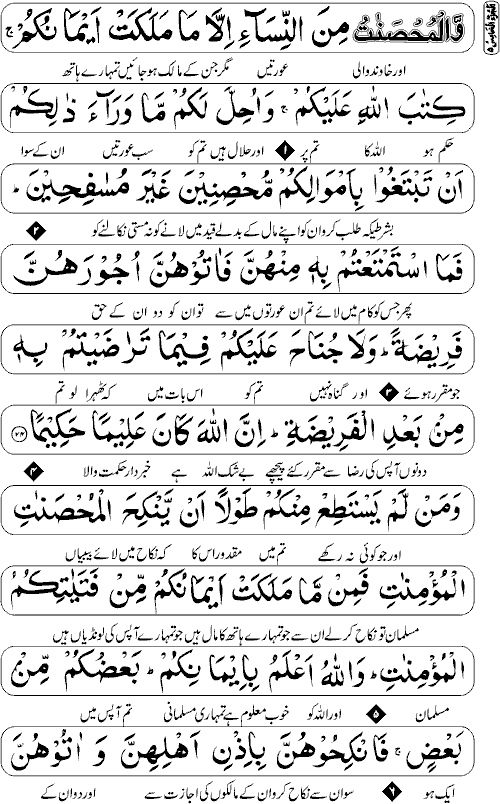 وَّالْمُحْصَنٰتُ مِنَ النِّسَآءِ اِلَّا مَا مَلَكَتْ اَيْمَانُكُمْ ۚ
اور خاوند والی عورتیں مگر جن کے مالک ہو جائیں تمہارے ہاتھ
كِتٰبَ اللّٰهِ عَلَيْكُمْ ۚ وَاُحِلَّ لَكُمْ مَّا وَرَآءَ ذٰلِكُمْ
حکم ہو اللہ کا تم پر ۱ اور حلال ہیں تم کو سب عورتیں ان کے سوا
اَنْ تَبْتَغُوْا بِاَمْوَالِكُمْ مُّحْصِنِيْنَ غَيْرَ مُسٰفِحِيْنَ ؕ
بشرطیکہ طلب کرو ان کو اپنے مال کے بدلے قید میں لانے کو نہ مستی نکالنے کو ۲
فَمَا اسْتَمْتَعْتُمْ بِهٖ مِنْهُنَّ فَاٰتُوْهُنَّ اُجُوْرَهُنَّ
پھر جس کو کام میں لائے تم ان عورتوں میں سے تو ان کو دو ان کے حق
فَرِيْضَةً ؕ وَلَا جُنَاحَ عَلَيْكُمْ فِيْمَا تَرٰضَيْتُمْ بِهٖ
جو مقرر ہوئے ۳ اور گناہ نہیں تم کو اس بات میں کہ ٹھہرا لو تم
مِنْۢ بَعْدِ الْفَرِيْضَةِ ؕ اِنَّ اللّٰهَ كَانَ عَلِيْمًا حَكِيْمًا ﴿۲۴﴾
دونوں آپس کی رضا سے مقرر کئے پیچھے بے شک اللہ ہے خبردار حکمت والا ۴
وَمَنْ لَّمْ يَسْتَطِعْ مِنْكُمْ طَوْلًا اَنْ يَّنْكِحَ الْمُحْصَنٰتِ
اور جو کوئی نہ رکھے تم میں مقدور اس کا کہ نکاح میں لائے بیبیاں
الْمُؤْمِنٰتِ فَمِنْ مَّا مَلَكَتْ اَيْمَانُكُمْ مِّنْ فَتَيٰتِكُمُ
مسلمان تو نکاح کر لے ان سے جو تمہارے ہاتھ کا مال ہیں جو تمہارے آپس کی لونڈیاں ہیں
الْمُؤْمِنٰتِ ؕ وَاللّٰهُ اَعْلَمُ بِاِيْمَانِكُمْ ؕ بَعْضُكُمْ مِّنْۢ
مسلمان ۵ اور اللہ کو خوب معلوم ہے تمہاری مسلمانی تم آپس میں
بَعْضٍ ۚ فَانْكِحُوْهُنَّ بِاِذْنِ اَهْلِهِنَّ وَ اٰتُوْهُنَّ
ایک ہو ۶ سو ان سے نکاح کرو ان کے مالکوں کی اجازت سے اور دو ان کے